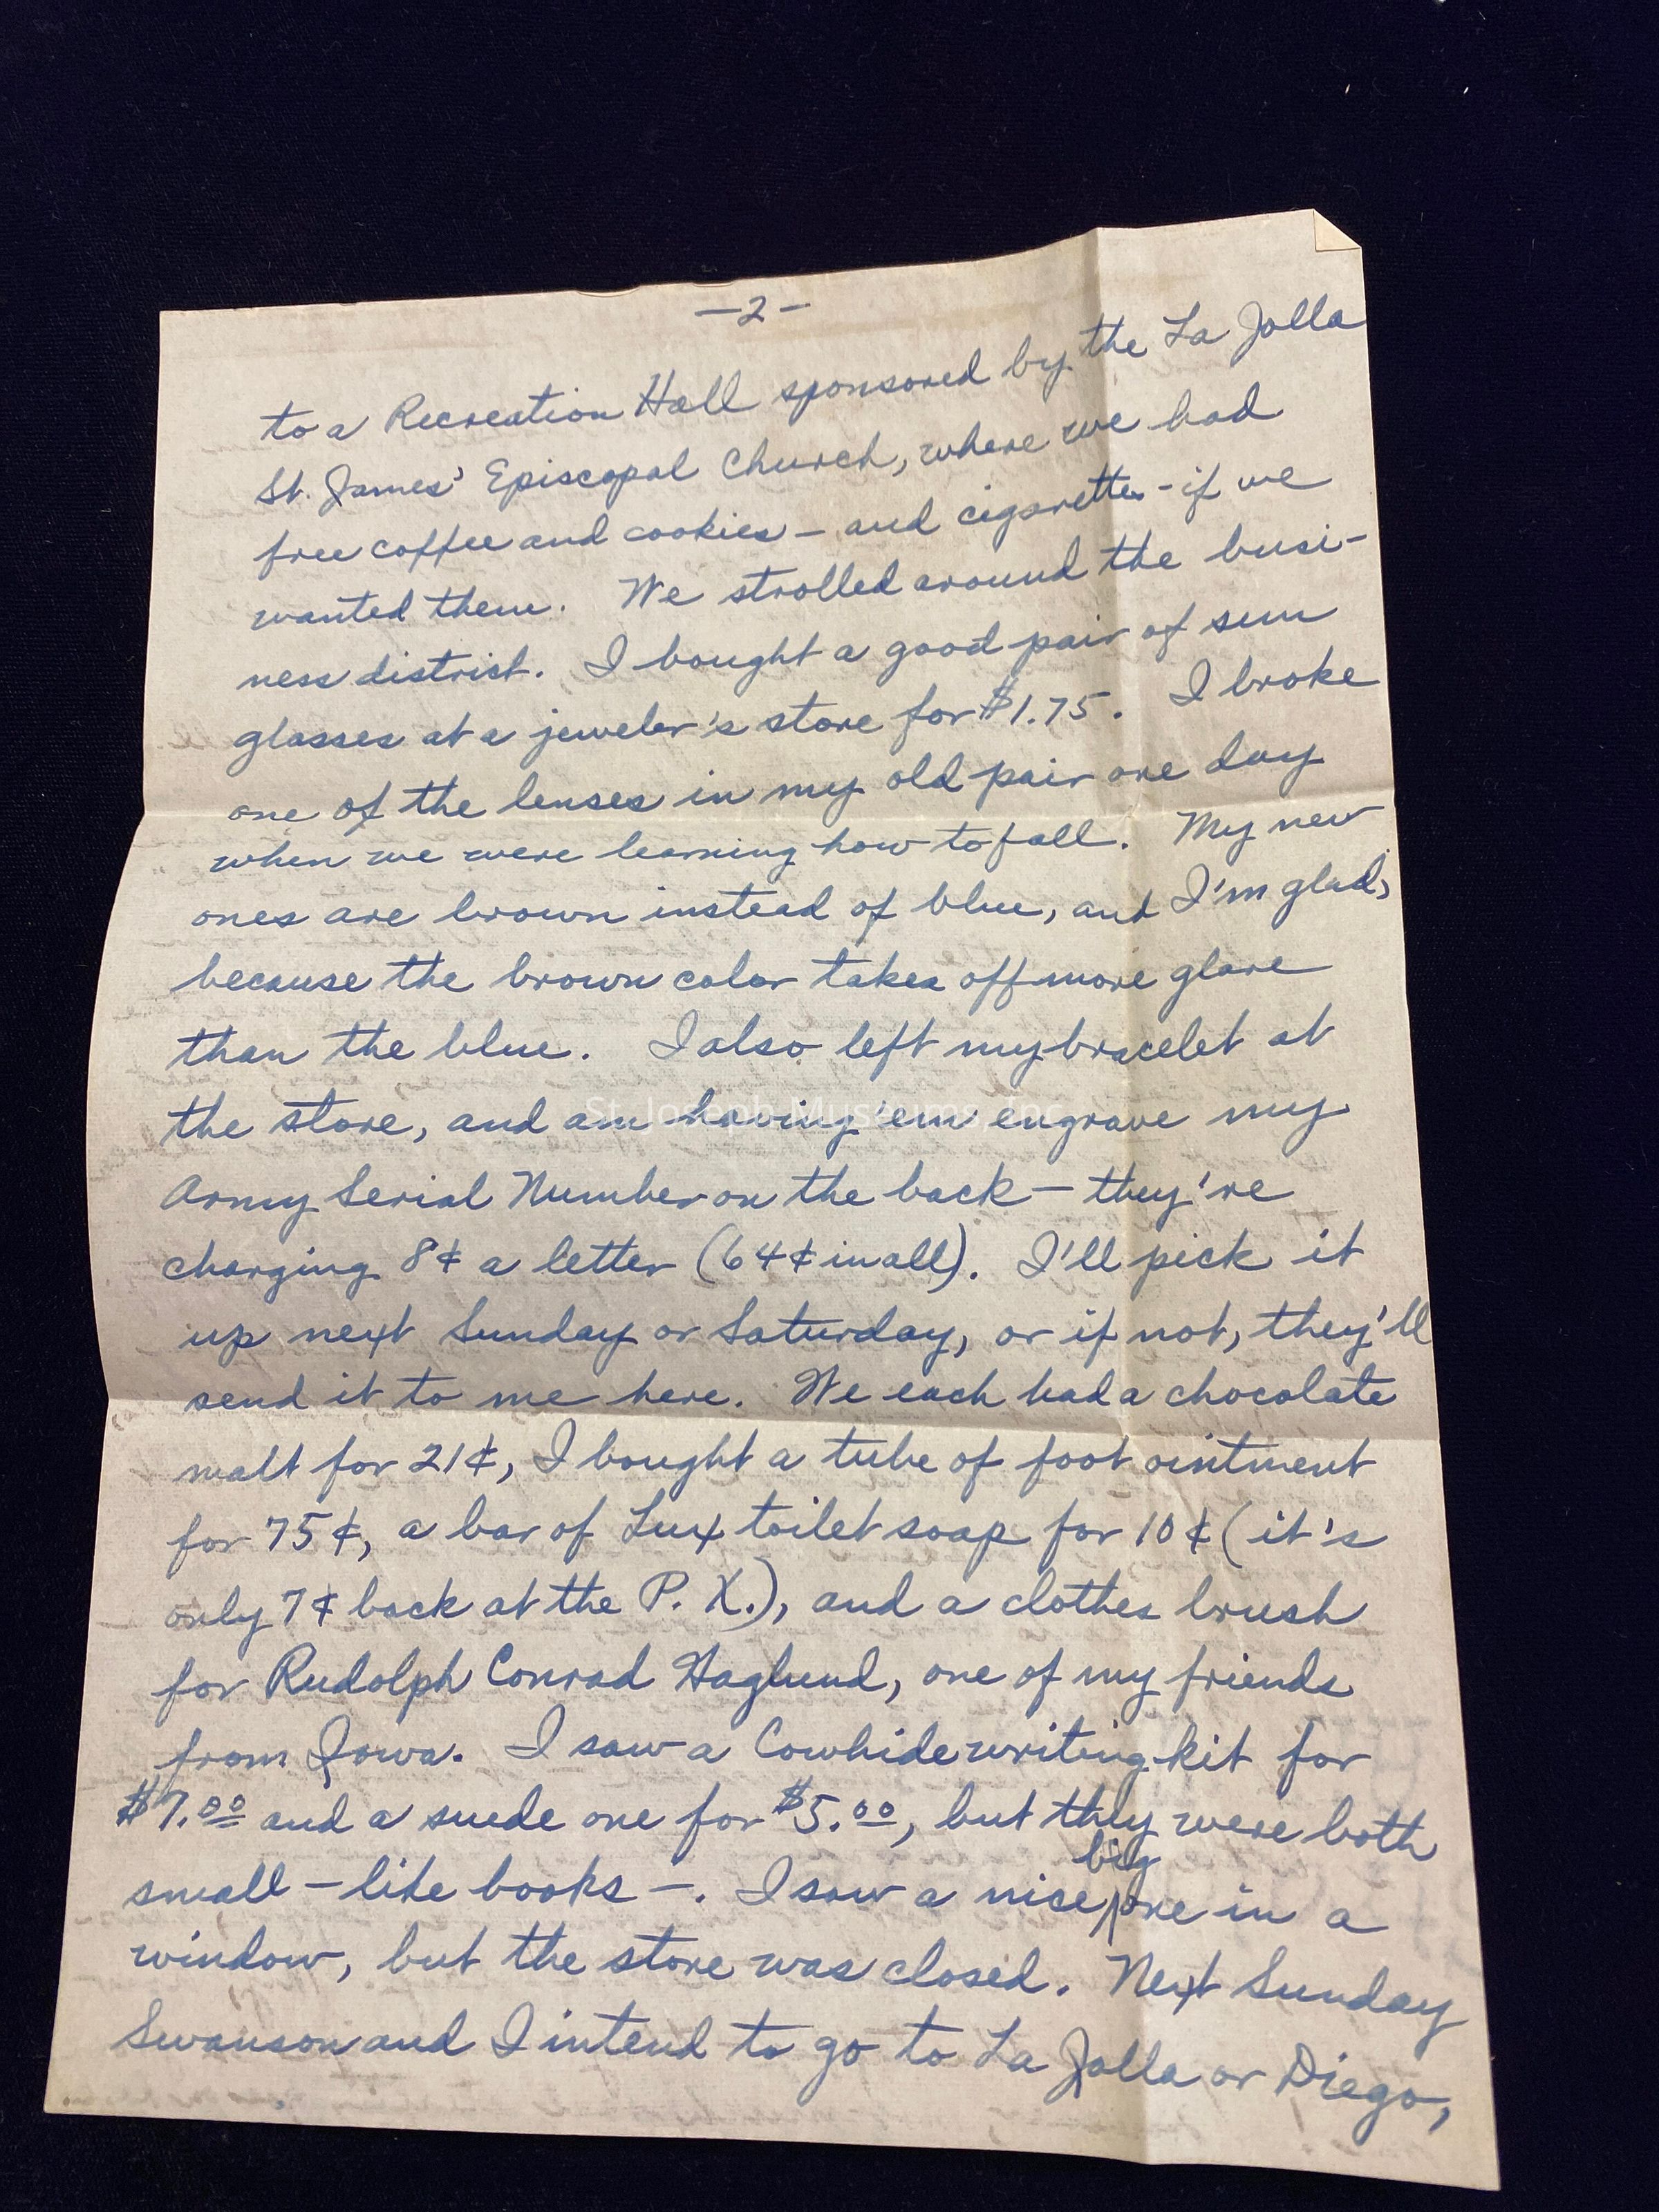 -2-
to a Recreation Hall sponsored by the La Jolla
St. James' Episcopal Church, where we had
free coffee and cookies - and cigarettes - if we
wanted them. We strolled around the busi-
ness district. I bought a good pair of sun
glasses at a jeweler's store for $1.75. I broke
one of the lenses in my old pair one day
when we were learning how to fall. My new
ones are brown instead of blue, and I'm glad,
because the brown color takes off more glare
than the blue. I also left my bracelet at
the store, and am having 'em engrave my
St. Joseph Museums, Inc.
Army Serial Number on the back - they're
charging 8¢ a letter (64¢ in all). I'll pick it
up next Sunday or Saturday, or if not, they'll
send it to me here. We each had a chocolate
malt for 21¢, I bought a tube of foot ointment
for 75¢, a bar of Lux toilet soap for 10¢ (it's
only 7¢ back at the P. X.), and a clothes brush
for Rudolph Conrad Haglund, one of my friends
from Iowa. I saw a Cowhide writing kit for
$7.00 and a suede one for $5.00, but they were both
small - like books -. I saw a nice big one in a
window, but the store was closed. Next Sunday
Swanson and I intend to go to La Jolla or Diego,